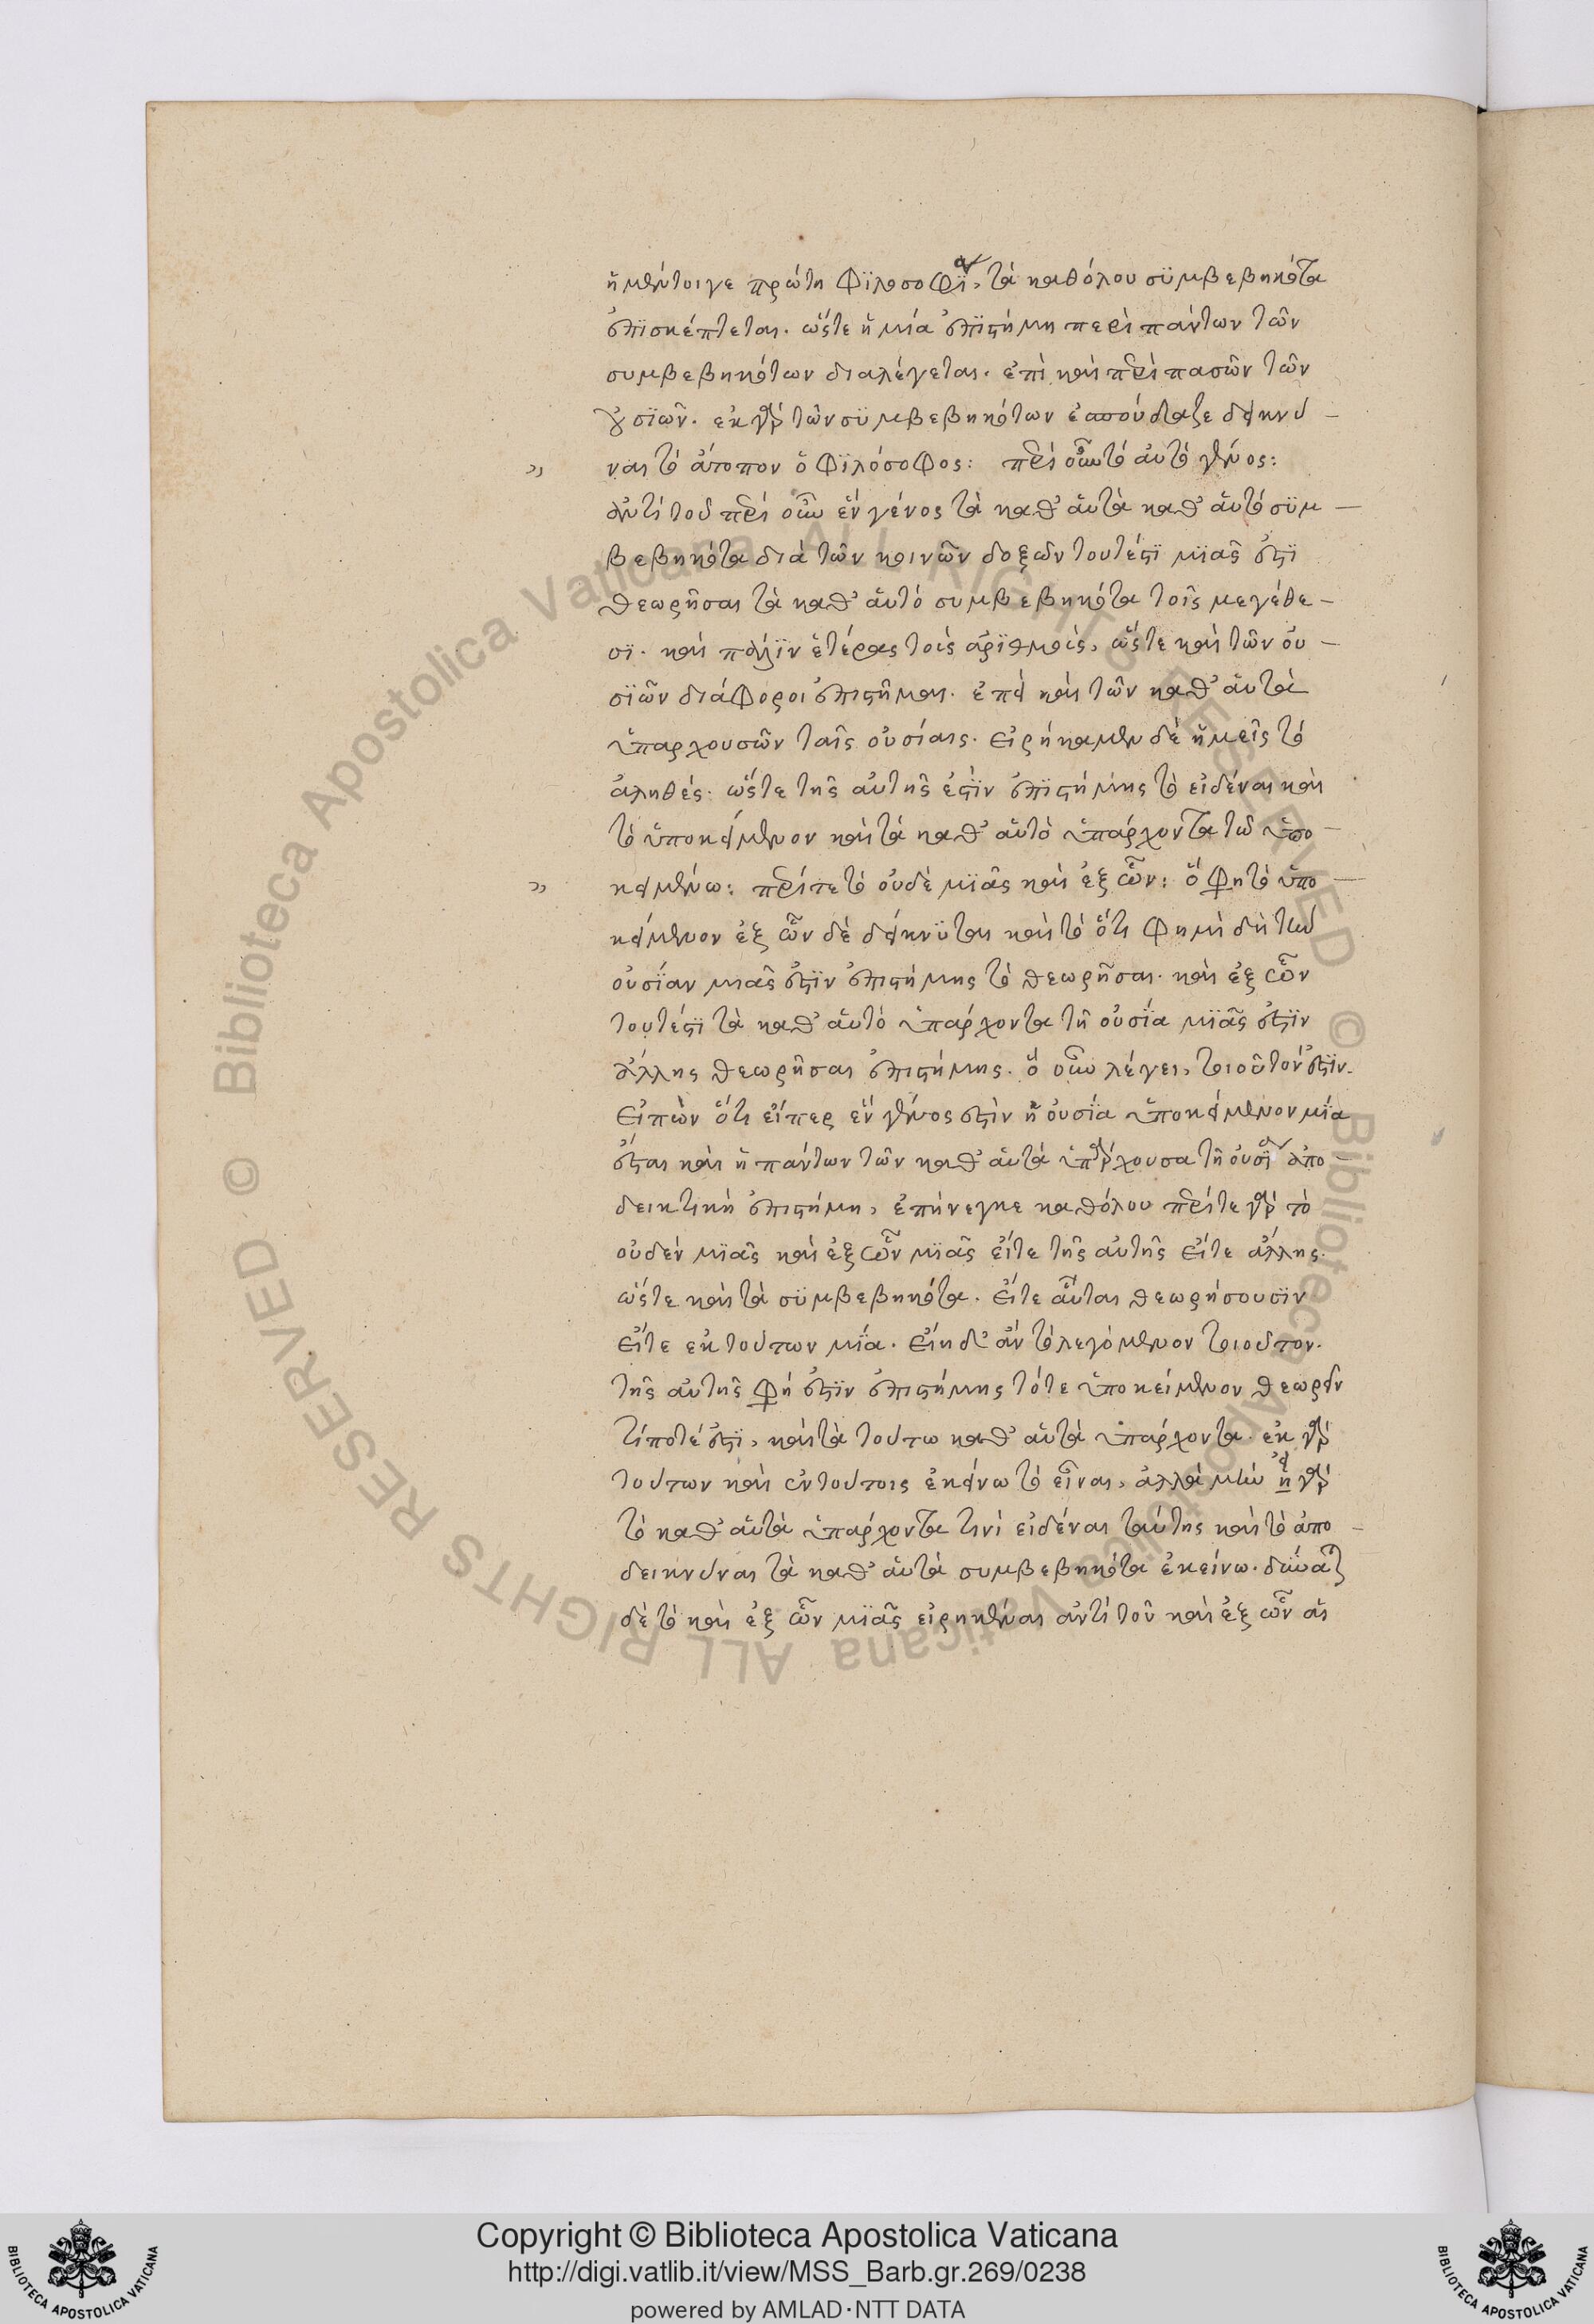 ἡ μέντοιγε πρώτη φϊλοσοφία, τὰ καθόλου σϋμβεβηκότα
ἐπϊσκέπτεται. ὥστε ἡ μία ἐπϊστήμη περὶ πάντων τῶν
συμβεβηκότων διαλέγεται. ἐπὶ καὶ περὶ πασῶν τῶν
οὐσϊῶν. ἐκ γὰρ τῶν σϋμβεβηκότων ἐσπούδαζε δεικνύ-
ναι τὸ ἄτοπον ὁ φϊλόσοφος: περὶ οὖν τὸ αὐτὸ γένος:
ἀντὶ τοῦ περὶ οὖν ἓν γένος τὰ καθ' αὑτὰ καθ' αὑτό σϋμ-
βεβηκότα διὰ τῶν κοινῶν δοξῶν τουτέστϊ μϊᾶς ἐστϊ
θεωρῆσαι τὰ καθ' αὑτό συμβεβηκότα τοῖς μεγέθε-
σϊ. καὶ πάλϊν ἑτέρας τοῖς ἀρϊθμοῖς, ὥστε καὶ τῶν οὐ-
σϊῶν διάφοροι ἐπιστῆμαι. ἐπεὶ καὶ τῶν καθ' αὑτὰ
ὑπαρχουσῶν ταῖς οὐσίαις. εἰρήκαμεν δὲ ἡμεῖς τὸ
ἀληθές. ὥστε τῆς αὐτῆς ἐστϊν ἐπϊστήμης τὸ εἰδέναι καὶ
τὸ ὑποκείμενον καὶ τὰ καθ' αὑτὸ ὑπάρχοντα τῶ ὑπο-
κειμένω: περί τε τὸ οὐδὲ μϊᾶς καὶ ἐξ ὧν: ὅ φη τὸ ὑπο-
κείμενον ἐξ ὧν δὲ δείκνϋται καὶ τὸ ὅτι φημὶ δὴ τὴν
οὐσϊαν μιᾶς ἐστϊν ἐπιστήμης τὸ θεωρῆσαι. καὶ ἐξ ὧν
τουτέστϊ τὰ καθ' αὑτό ὑπάρχοντα τῆ οὐσϊα μϊᾶς ἐστϊν
ἄλλης θεωρῆσαι ἐπιστήμης. ὃ οὖν λέγει, τοιοῦτόν ἐστϊν.
Εἰπὼν ὅτι εἴπερ ἓν γένος ἐστὶν ἡ οὐσϊα ὑποκείμενον μϊα
ἔσται καὶ ἡ πάντων τῶν καθ' αὑτὰ ὑπάρχουσα τῆ οὐσϊα ἀπο-
δεικτικὴ ἐπιστήμη, ἐπήνεγκε καθόλου περί τε γὰρ τὸ
οὐδέν μϊᾶς καὶ ἐξ ὧν μϊᾶς εἴτε τῆς αὐτῆς εἴτε ἄλλης.
ὥστε καὶ τὰ σϋμβεβηκότα. εἴτε αὗται θεωρήσουσϊν
εἴτε ἐκ τούτων μϊα. εἴη δ' ἂν τὸ λεγόμενον τοιοῦτον.
τῆς αὐτῆς φή ἐστϊν ἐπιστήμης τό τε ὑποκείμενον θεωρεῖν
τί ποτέ ἐστϊ, καὶ τὰ τούτω καθ' αὑτὰ ὑπάρχοντα. ἐκ γὰρ
τούτων καὶ ἐν τούτοις ἐκείνω τὸ εἶναι, ἀλλὰ μὴν εἰ ἡ γὰρ
τὸ καθ' αὑτὰ ὑπάρχοντα τινὶ εἰδέναι ταύτης καὶ τὸ ἀπο-
δεικνύναι τὰ καθ' αὑτὰ συμβεβηκότα ἐκείνω. δύναται
δὲ τὸ καὶ ἐξ ὧν μϊᾶς εἰρηκέναι ἀντὶ τοῦ καὶ ἐξ ὧν αἱ
Copyright © Biblioteca Apostolica Vaticana
http://digi.vatlib.it/view/MSS_Barb.gr.269/0238
powered by AMLAD·NTT DATA